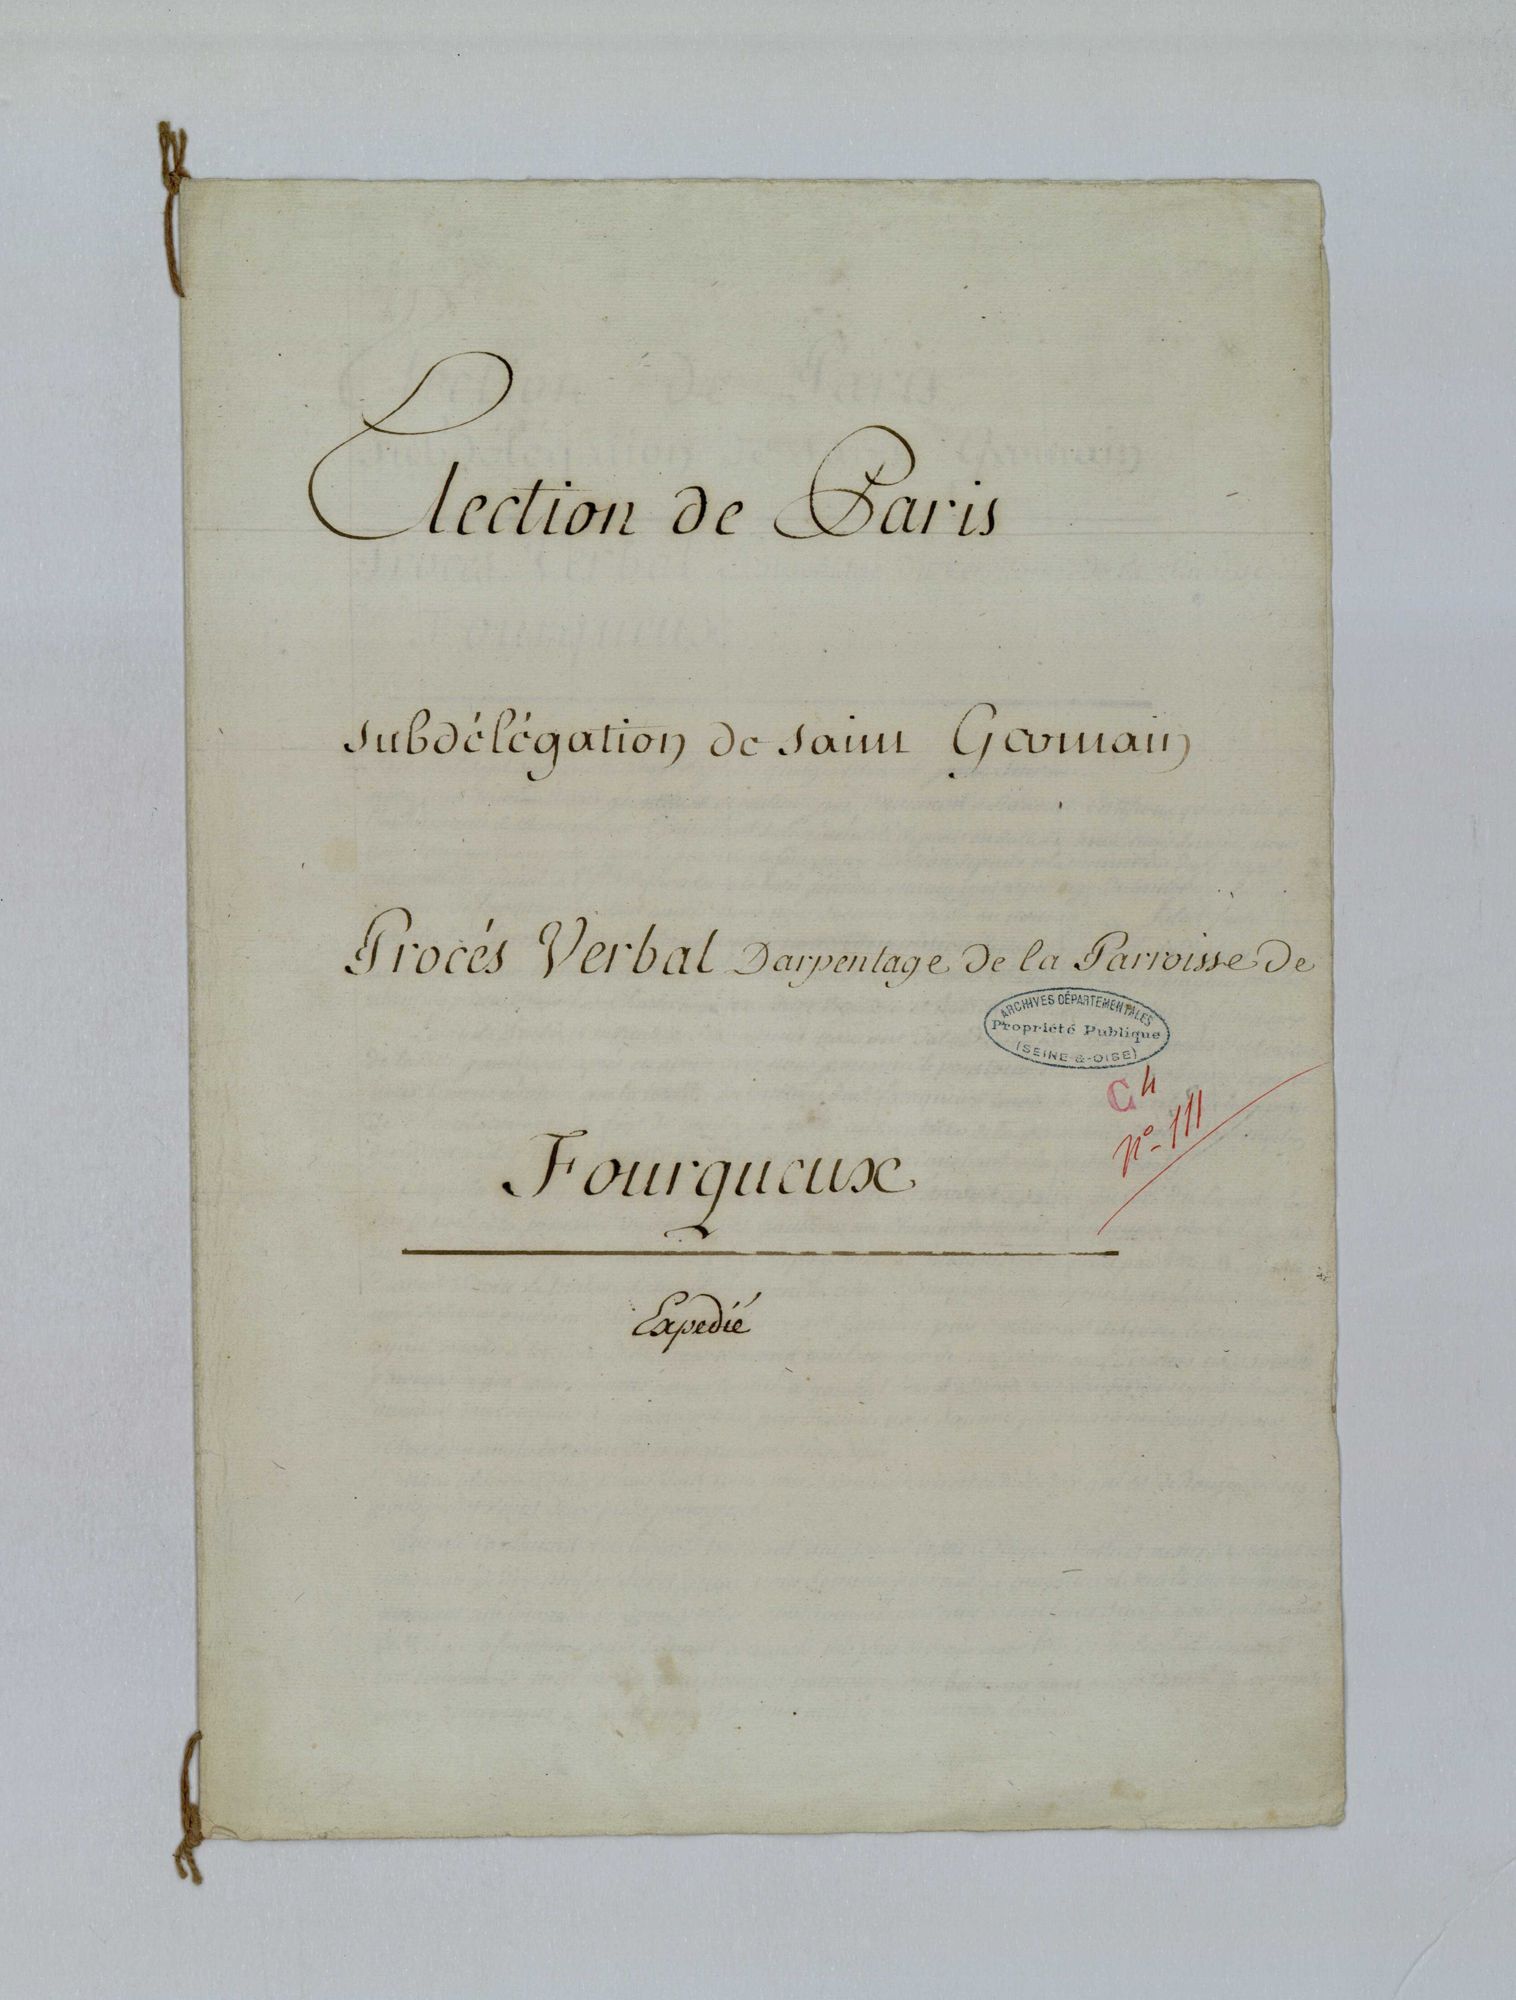 Election de Paris
subdélégation de saint Germain
Procés Verbal Darpentage de la Parroisse de
ARCHIVES DÉPARTEMENTALES
Propriété Publique
(SEINE-&-OISE)
C 4
N° 111
Fourqueux
Expedié